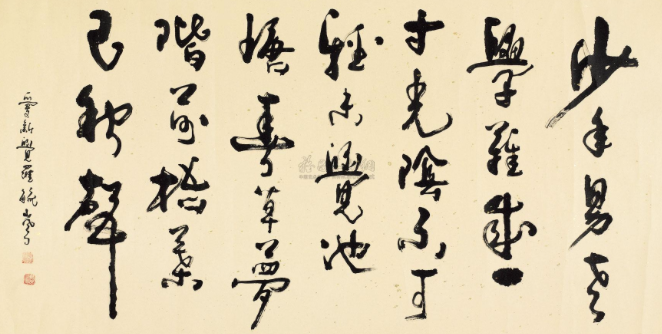 少年易老
學難成一
寸光陰不可
輕未覺池
塘春草夢
階前梧葉
已秋聲
愛新覺羅毓